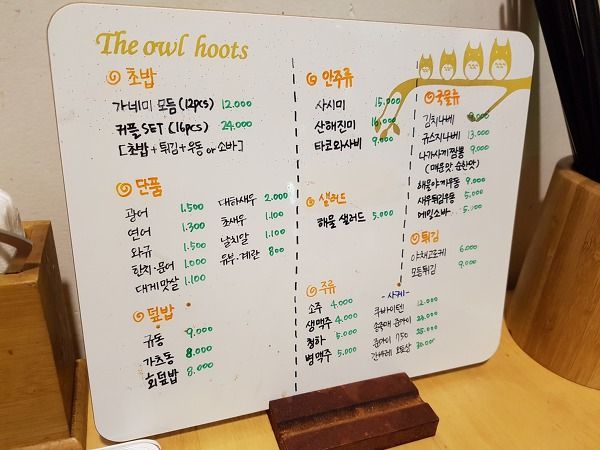 The owl hoots
초밥
가네미 모듬 (12pcs) 12.000
커플SET (16pcs) 24.000
[초밥+튀김+우동 or 소바]
단품
광어 1.500
연어 1.300
와규 1.500
한치·문어 1.000
대게맛살 1.100
대타새우 2.000
초새우 1.100
날치알 1.100
유부·계란 800
덮밥
규동 9.000
가츠동 8.000
회덮밥 8.000
안주류
사시미 15.000
산해진미
타코와사비 9.000
샐러드
해물 샐러드 5.000
주류
소주 4.000
생맥주 4.000
청하 5.000
병맥주 5.000
-사케-
쿠바이텐 12.000
준마이 24.000
준마이 750 25.000
간바레 오토상 30.000
국물류
김치나베
규스지나베 13.000
나가사끼짬뽕 9.000
(매운맛, 순한맛)
해물야끼우동 9.000
새우튀김우동 5.000
메밀소바 5.000
튀김
야채고로케 6.000
모듬튀김 9.000